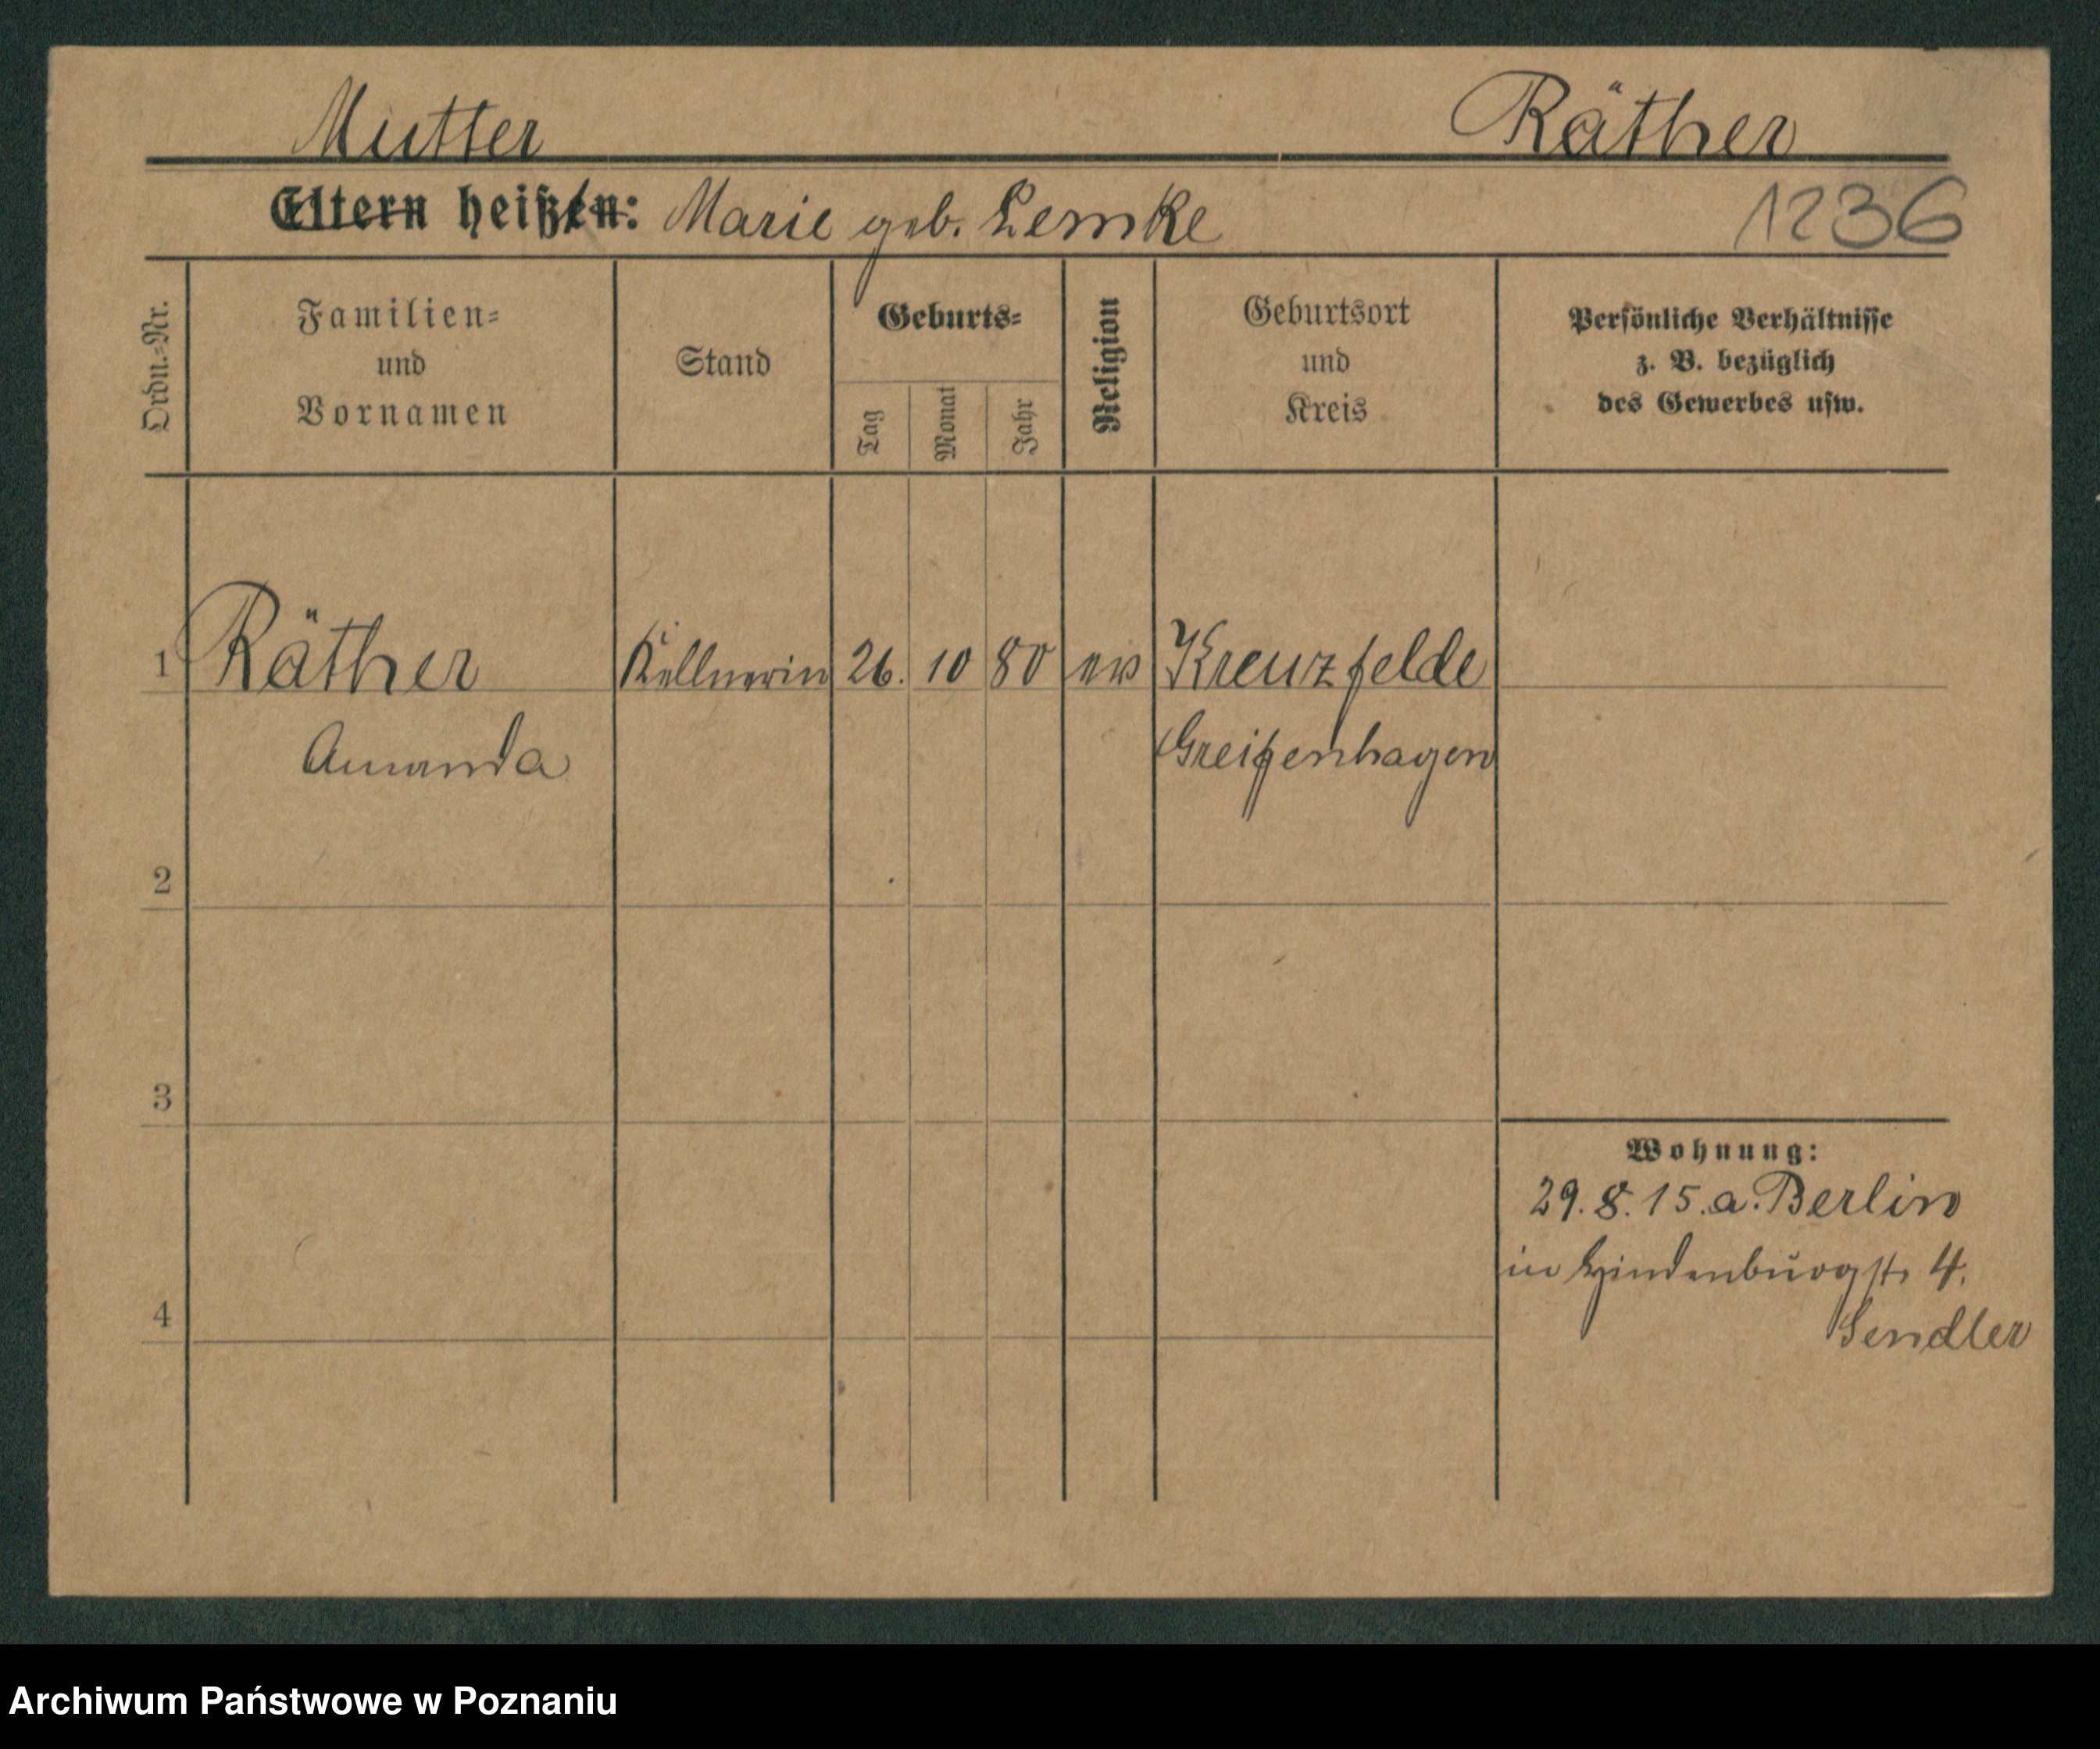 Mutter Räther
Eltern heißen: Marie geb. Lemke 1236
Ordn.-Nr.
Familien-
und
Vornamen
Stand
Geburts-
Tag
Monat
Jahr
Religion
Geburtsort
und
Kreis
Persönliche Verhältnisse
z. B. bezüglich
des Gewerbes usw.
1 Räther Kellnerin 26. 10 80 ev Kreuzfelde
Amanda Greifenhagen
2
3
Wohnung:
29. 8. 15. a. Berlin
in Hindenburgstr 4.
4 Sendler
Archiwum Państwowe w Poznaniu